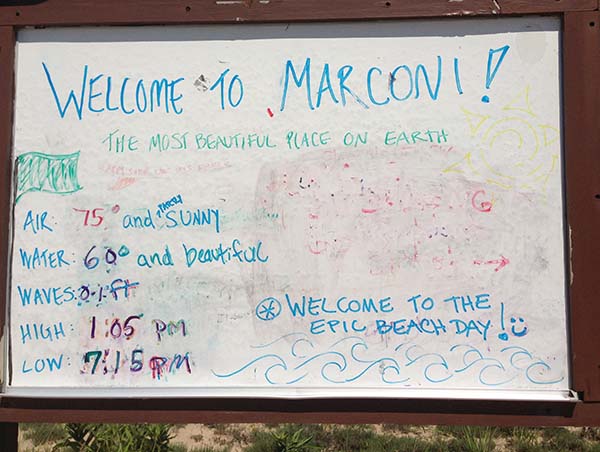 WELCOME TO MARCONI!
THE MOST BEAUTIFUL PLACE ON EARTH
AIR: 75° and SUNNY
WATER: 60° and beautiful
WAVES: 0-1 ft
HIGH: 1:05 PM
LOW: 7:15 PM
WELCOME TO THE
EPIC BEACH DAY!